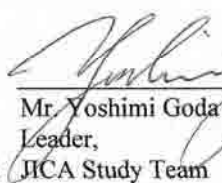 Mr. Yoshimi Goda
Leader,
JICA Study Team